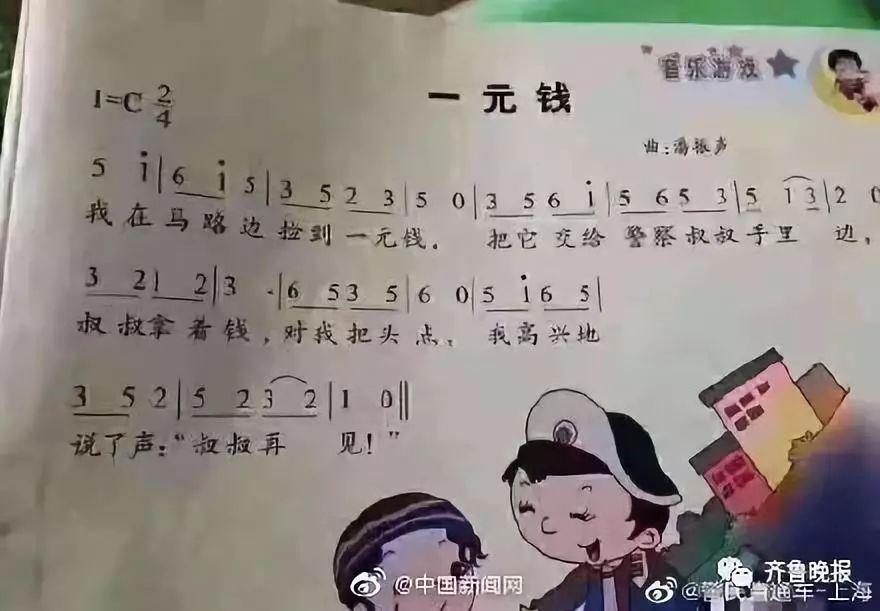 音乐游戏
一元钱
1=C 2/4
曲:潘振声
5 i | 6 i 5 | 3 5 2 3 | 5 0 | 3 5 6 i | 5 6 5 3 | 5 1 3 | 2 0
我在马路边捡到一元钱。 把它交给警察叔叔手里 边,
3 2 1 2 | 3 · | 6 5 3 5 | 6 0 | 5 i 6 5 |
叔叔拿着钱,对我把头点。 我高兴地
3 5 2 | 5 2 3 2 | 1 0 ||
说了声:“叔叔再 见!”
齐鲁晚报
@中国新闻网
@警民直通车-上海